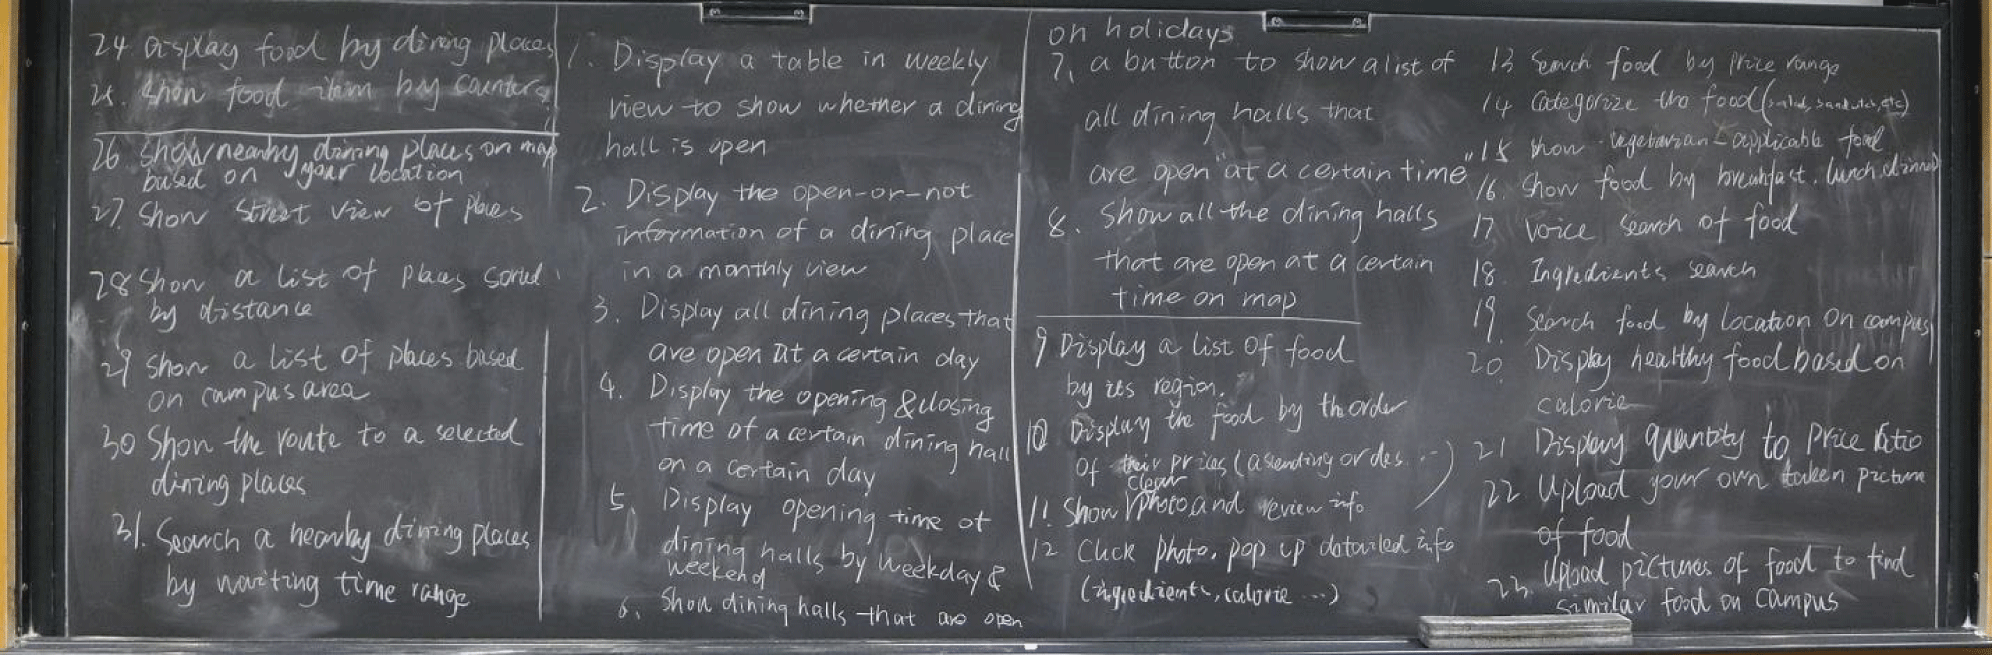 24 Display food by dining places
25. Show food item by counters
26. Show nearby dining places on map
based on your location
27. Show street view of places
28 Show a list of places sorted
by distance
29 Show a list of places based
on campus area
30 Show the route to a selected
dining places
31. Search a nearby dining places
by waiting time range
1. Display a table in weekly
view to show whether a dining
hall is open
2. Display the open-or-not
information of a dining place
in a monthly view
3. Display all dining places that
are open at a certain day
4. Display the opening & closing
time of a certain dining hall
on a certain day
5. Display opening time of
dining halls by weekday &
weekend
6. Show dining halls that are open
on holidays
7. a button to show a list of
all dining halls that
are open "at a certain time"
8. Show all the dining halls
that are open at a certain
time on map
9 Display a list of food
by its region.
10 Display the food by the order
of their prices (ascending or des...)
11. Show clear photo and review info
12 Click photo, pop up detailed info
(ingredients, calorie ...)
13 Search food by price range
14 Categorize the food (salad, sandwich, etc)
15 show vegetarian-applicable food
16. Show food by breakfast, lunch, dinner
17 Voice search of food
18. Ingredients search
19. Search food by location on campus
20. Display healthy food based on
calorie
21 Display quantity to price ratio
22 Upload your own taken picture
of food
23. Upload pictures of food to find
similar food on campus